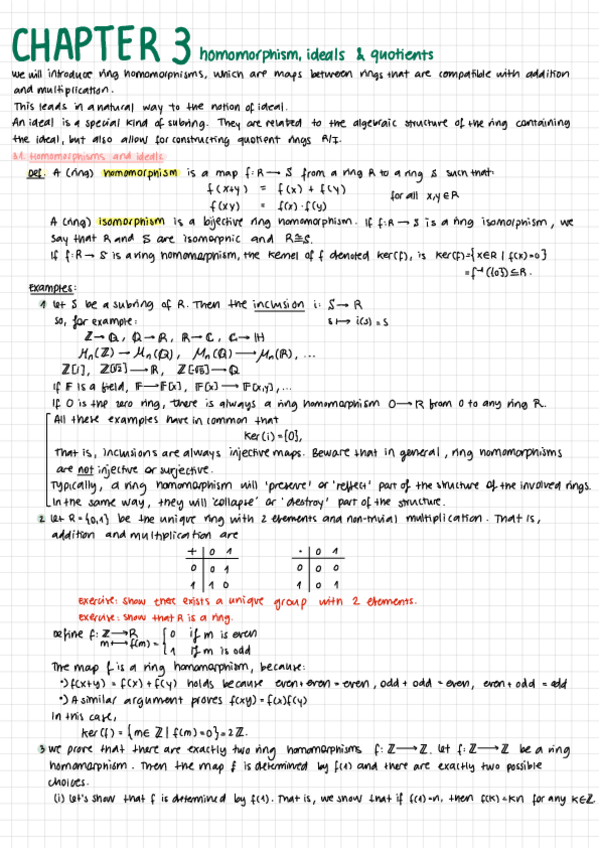 CHAPTER 3 homomorphism, ideals & quotients
we will introduce ring homomorphisms, which are maps between rings that are compatible with addition
and multiplication.
This leads in a natural way to the notion of ideal.
An ideal is a special kind of subring. They are related to the algebraic structure of the ring containing
the ideal, but also allow for constructing quotient rings R/I.
3.1. Homomorphisms and ideals
Def. A (ring) homomorphism is a map f: R → S from a ring R to a ring S such that
f(x+y) = f(x) + f(y)
for all x,y ∈ R
f(xy) = f(x)·f(y)
A (ring) isomorphism is a bijective ring homomorphism. If f: R → S is a ring isomorphism, we
say that R and S are isomorphic and R≅S.
If f: R → S is a ring homomorphism, the kernel of f denoted ker(f), is ker(f)={x∈R | f(x)=0}
=f⁻¹({0})⊆R.
Examples:
1 Let S be a subring of R. Then the inclusion i: S→R
so, for example: s ↦ i(s)=s
ℤ→ℚ, ℚ→ℝ, ℝ→ℂ, ℂ→ℍ
Mₙ(ℤ)→Mₙ(ℚ), Mₙ(ℚ)→Mₙ(ℝ), ...
ℤ[i], ℤ[√2]→ℝ, ℤ[√5]→ℚ
If F is a field, F→F[x], F[x]→F[x,y], ...
If 0 is the zero ring, there is always a ring homomorphism 0→R from 0 to any ring R.
All these examples have in common that
ker(i)={0},
That is, inclusions are always injective maps. Beware that in general, ring homomorphisms
are not injective or surjective.
Typically, a ring homomorphism will 'preserve' or 'reflect' part of the structure of the involved rings.
In the same way, they will 'collapse' or 'destroy' part of the structure.
2 Let R={0,1} be the unique ring with 2 elements and non-trivial multiplication. That is,
addition and multiplication are
+ | 0 1 · | 0 1
0 | 0 1 0 | 0 0
1 | 1 0 1 | 0 1
exercise: show there exists a unique group with 2 elements.
exercise: show that R is a ring.
Define f: ℤ→R
m ↦ f(m) = { 0 if m is even
1 if m is odd
The map f is a ring homomorphism, because:
·) f(x+y) = f(x) + f(y) holds because even+even=even, odd+odd=even, even+odd=odd
·) A similar argument proves f(xy)=f(x)f(y)
In this case,
ker(f) = {m∈ℤ | f(m)=0}=2ℤ.
3 we prove that there are exactly two ring homomorphisms f: ℤ→ℤ. Let f: ℤ→ℤ be a ring
homomorphism. Then the map f is determined by f(1) and there are exactly two possible
choices.
(i) Let's show that f is determined by f(1). That is, we show that if f(1)=n, then f(k)=kn for any k∈ℤ.